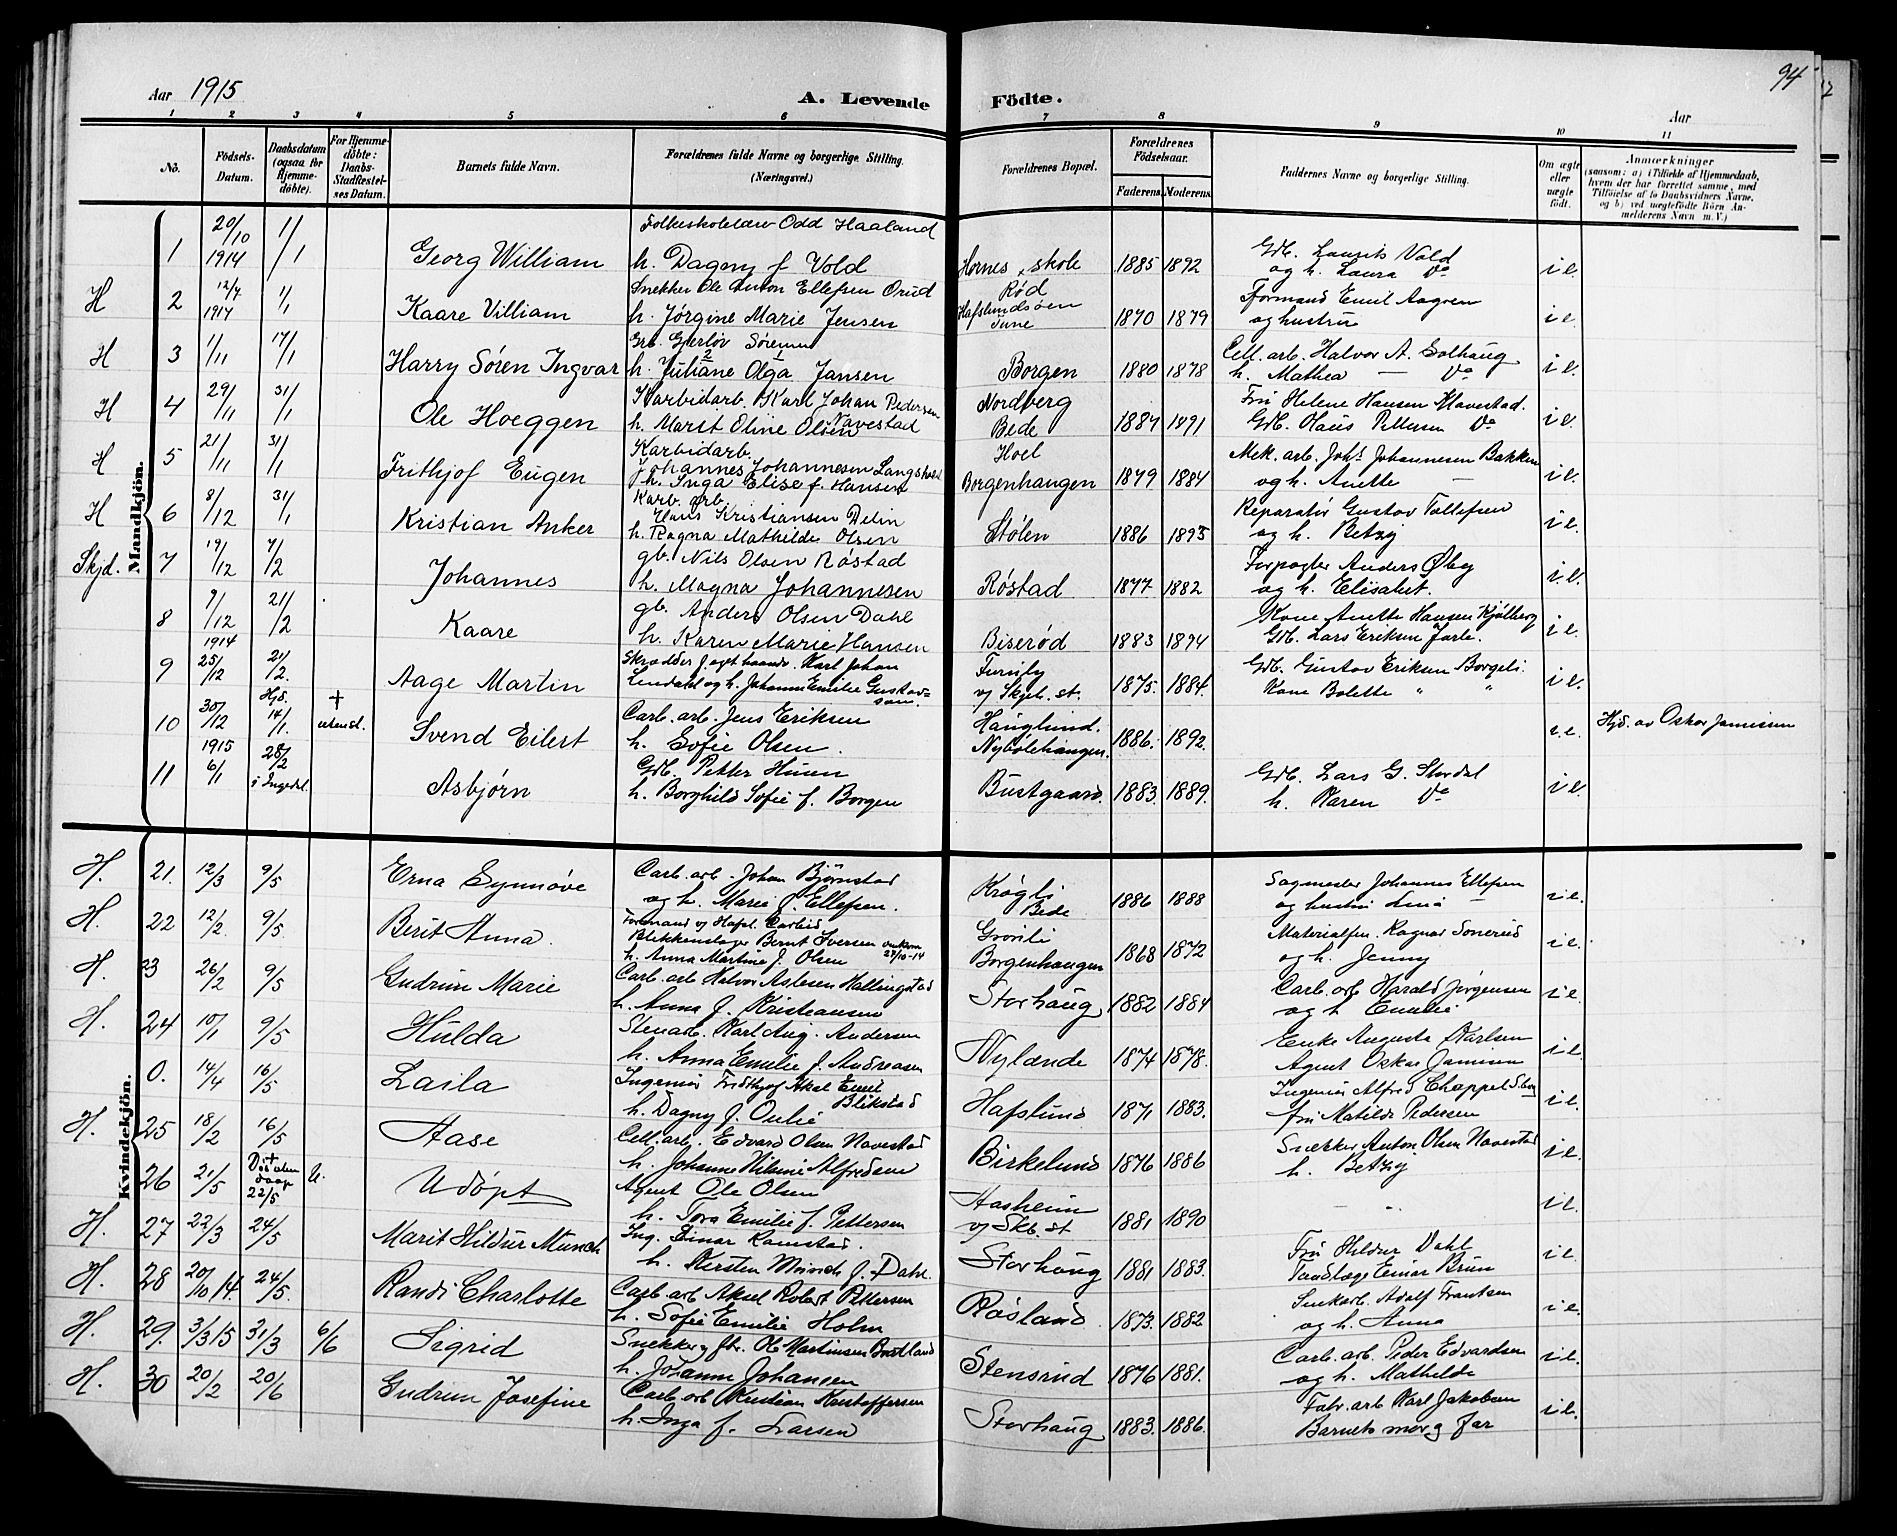 Aar 1915
A. Levende Födte.
94
Aar
1 2 3 4 5 6 7 8 9 10 11
No. | Födsels-Datum. | Daabsdatum (ogsaa for Hjemme-döbte). | For Hjemme-döbte: Daabs-Stadfæstel-ses Datum. | Barnets fulde Navn. | Forældrenes fulde Navne og borgerlige Stilling. (Næringsvei.) | Forældrenes Bopæl. | Forældrenes Födselsaar. Faderens. Moderens. | Faddernes Navne og borgerlige Stilling. | Om ægte eller uægte födt. | Anmærkninger (saasom: a) i Tilfælde af Hjemmedaab, hvem der har forrettet samme, med Tilföielse af to Daabsvidners Navne, og b) ved uægtefödte Börn An-melderens Navn m. V.)
Mandkjön.
1 20/10 1914 1/1 Georg William Folkeskolelærer Odd Haaland
h. Dagny f. Vold Hornes skole 1885 1892 Gdb. Laurits Vold
og h. Laura Do i e.
H 2 12/7 1914 1/1 Kaare Villiam Snekker Ole Anton Ellefsen Orud
h. Jörgine Marie Jensen Rød Hafslundsöen Tune 1870 1879 Formand Emil Aagren
og hustru i e.
H 3 1/11 17/1 Harry Sören Ingvar Grb. Gjerlöv Sörensen
h. Juliane Olga Jansen Borgen 1880 1878 Cell. arb. Halvor A. Solhaug
h. Mathea — Do i e.
H 4 29/11 31/1 Ole Hoeggen Karbidarb. Karl Johan Pedersen Navestad
h. Marit Oline Olsen Nordberg Bede 1887 1891 Fru Helene Hansen Navestad.
Gdb. Olaus Pettersen Do i e.
H 5 21/11 31/1 Frithjof Eugen Karbidarb.
Johannes Johannesen Langsholt
h. Inga Elise f. Hansen Hoel Borgenhaugen 1879 1884 Mek. arb. Johs Johannesen Bakken
og h. Anette — i e.
H 6 8/12 31/1 Kristian Anker Karb. arb.
Hans Kristiansen Delin
h. Ragna Mathilde Olsen Stölen 1886 1895 Reparatör Gustav Tollefsen
og h. Betzy i e.
Skjd. 7 19/12 7/2 Johannes gb. Nils Olsen Röstad
h. Magna Johannesen Röstad 1877 1882 Forpagter Anders Öby
og h. Elisabet. i e.
8 9/12 1914 21/2 Kaare gb. Anders Olsen Dahl
h. Karen Marie Hansen Biseröd 1883 1894 Kone Anette Hansen Kjölberg
Gdb. Lars Eriksen Jarle. i e.
9 25/12 21/2. Aage Martin Skrædder f. eget haand. Karl Johan
Lendahl og h. Johanne Emilie Gustav-
sen. Furuly v/ Skjeb. st. 1875. 1884. Gdb. Gustav Eriksen Borgeli
Kone Bolette " " i e.
10 30/12 Hjd. 14/1. † utenst. Svend Eilert Carb. arb. Jens Eriksen
h. Sofie Olsen. Hauglund. Nybölehaugen. 1886. 1892. i. e. Hjd. av Oskar Jamissen
11 1915 6/1 28/2 i Ingedal. Asbjörn Gdb. Petter Huun
h. Borghild Sofie f. Borgen Bustgaard. 1883. 1889. Gdb. Lars G. Stordal
h. Karen Do i e.
Kvindekjön.
H. 21. 12/3 9/5 Erna Synnöve Carb. arb. Johan Björnstad
og h. Marie f. Ellefsen. Krogli Bede 1886 1888 Sagmester Johannes Ellefsen
og hustru Lina i e.
H. 22 12/2. 9/5. Berit Anna. Formand v/ Hafsl. Carbid
Blikkenslager Bernt Iversen omkom 27/10-14
h. Anna Martine f. Olsen Grönli Borgenhaugen 1868 1872 Materialfm. Ragnar Sonerud
og h. Jenny i e.
H. 23 26/2 9/5 Gudrun Marie Carb. arb Halvor Aslesen Hallingstad
h. Anna f. Kristiansen Storhaug 1882 1884 Carb. arb Harald Jörgensen
og h Emilie i e.
H. 24 10/1 9/5 Hulda Stenarb. Karl Aug. Andersen
h. Anna Emilie f. Andreasen Nylænde 1874 1878. Enke Augusta Karlsen
Agent Oskar Jamisen i e.
0. 14/4 16/5 Laila Ingeniör Fridthjof Aksel Emil Blikstad
h. Dagny f. Oulie Hafslund 1871 1883. Ingeniör Alfred Chappelsberg
fru Matilde Pedersen i e.
H. 25 18/2 16/5 Aase Cell. arb. Edvard Olsen Navestad
h. Johanne Vilmine Alfredsen Birkelund 1876 1886 Snekker Anton Olsen Navestad
h. Betzy i e.
26 21/5 Död † uten daap 22/5 U. Udöpt Agent Ole Olsen
h. Tora Emilie f. Pettersen Aasheim v/ Skb. st 1881 1890 i e.
H. 27 22/3 24/5 Marit Hildur Munch Ing. Einar Ramstad.
h. Kirsten Munch f. Dahl. Storhaug 1881 1883. Fru Hildur Dahl
Tandlæge Einar Brun i e.
H. 28 20/10 14. 24/5. Randi Charlotte Carb arb Aksel Robert Pettersen
h. Sofie Emilie Holm Rösland 1873. 1882 Smekarb. Adolf Frantsen
og h. Anna i e.
H. 29. 3/3 15 31/3 6/6 Sigrid Snekker v/ fbr. Ole Martinsen Bustland
h. Johanne Johansen Stensrud 1876 1881. Carb. arb. Peder Edvardsen
og h. Mathilde i e.
H. 30 20/2 20/6 Gudrun Josefine Carb. arb Kristian Kristoffersen
h. Inga f. Larsen Storhaug 1883. 1886. Fabr. arb Karl Jakobsen
Barnets mor og far i e.